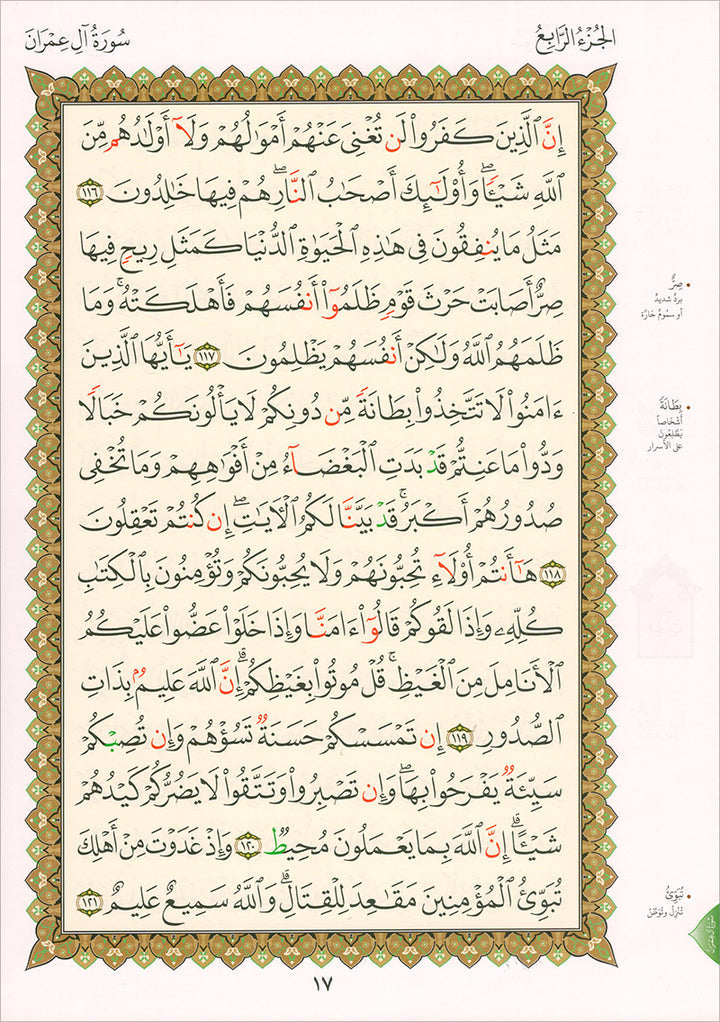 الجُزْءُ الرَّابِعُ
سُورَةُ آلِ عِمْرَانَ
إِنَّ ٱلَّذِينَ كَفَرُوا۟ لَن تُغْنِىَ عَنْهُمْ أَمْوَٰلُهُمْ وَلَآ أَوْلَٰدُهُم مِّنَ
ٱللَّهِ شَيْـًٔا ۖ وَأُو۟لَٰٓئِكَ أَصْحَٰبُ ٱلنَّارِ ۖ هُمْ فِيهَا خَٰلِدُونَ ١١٦
مَثَلُ مَا يُنفِقُونَ فِى هَٰذِهِ ٱلْحَيَوٰةِ ٱلدُّنْيَا كَمَثَلِ رِيحٍ فِيهَا
صِرٌّ أَصَابَتْ حَرْثَ قَوْمٍ ظَلَمُوٓا۟ أَنفُسَهُمْ فَأَهْلَكَتْهُ ۚ وَمَا
ظَلَمَهُمُ ٱللَّهُ وَلَٰكِنْ أَنفُسَهُمْ يَظْلِمُونَ ١١٧ يَٰٓأَيُّهَا ٱلَّذِينَ
ءَامَنُوا۟ لَا تَتَّخِذُوا۟ بِطَانَةً مِّن دُونِكُمْ لَا يَأْلُونَكُمْ خَبَالًا
وَدُّوا۟ مَا عَنِتُّمْ قَدْ بَدَتِ ٱلْبَغْضَآءُ مِنْ أَفْوَٰهِهِمْ وَمَا تُخْفِى
صُدُورُهُمْ أَكْبَرُ ۚ قَدْ بَيَّنَّا لَكُمُ ٱلْءَايَٰتِ ۖ إِن كُنتُمْ تَعْقِلُونَ
١١٨ هَٰٓأَنتُمْ أُو۟لَآءِ تُحِبُّونَهُمْ وَلَا يُحِبُّونَكُمْ وَتُؤْمِنُونَ بِٱلْكِتَٰبِ
كُلِّهِۦ وَإِذَا لَقُوكُمْ قَالُوٓا۟ ءَامَنَّا وَإِذَا خَلَوْا۟ عَضُّوا۟ عَلَيْكُمُ
ٱلْأَنَامِلَ مِنَ ٱلْغَيْظِ ۚ قُلْ مُوتُوا۟ بِغَيْظِكُمْ ۗ إِنَّ ٱللَّهَ عَلِيمٌۢ بِذَاتِ
ٱلصُّدُورِ ١١٩ إِن تَمْسَسْكُمْ حَسَنَةٌ تَسُؤْهُمْ وَإِن تُصِبْكُمْ
سَيِّئَةٌ يَفْرَحُوا۟ بِهَا ۖ وَإِن تَصْبِرُوا۟ وَتَتَّقُوا۟ لَا يَضُرُّكُمْ كَيْدُهُمْ
شَيْـًٔا ۗ إِنَّ ٱللَّهَ بِمَا يَعْمَلُونَ مُحِيطٌ ١٢٠ وَإِذْ غَدَوْتَ مِنْ أَهْلِكَ
تُبَوِّئُ ٱلْمُؤْمِنِينَ مَقَٰعِدَ لِلْقِتَالِ ۗ وَٱللَّهُ سَمِيعٌ عَلِيمٌ ١٢١
• صِرٌّ
بردٌ شديدٌ
أو سمومٌ حارّة
• بِطَانَةً
أشخاصاً
يطّلعون
على الأسرار
• تُبَوِّئُ
تُنزِلُ وتُوَطِّنُ
سورة آل عمران
١٧